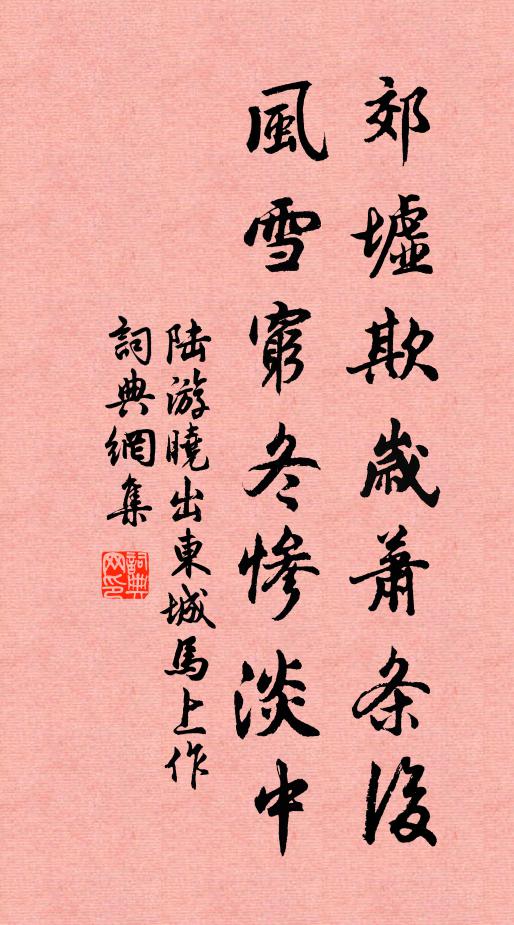 郊墟欺歲蕭条後
風雪窮冬慘淡中
陆游曉出東城馬上作
詞典網集
詞典网印